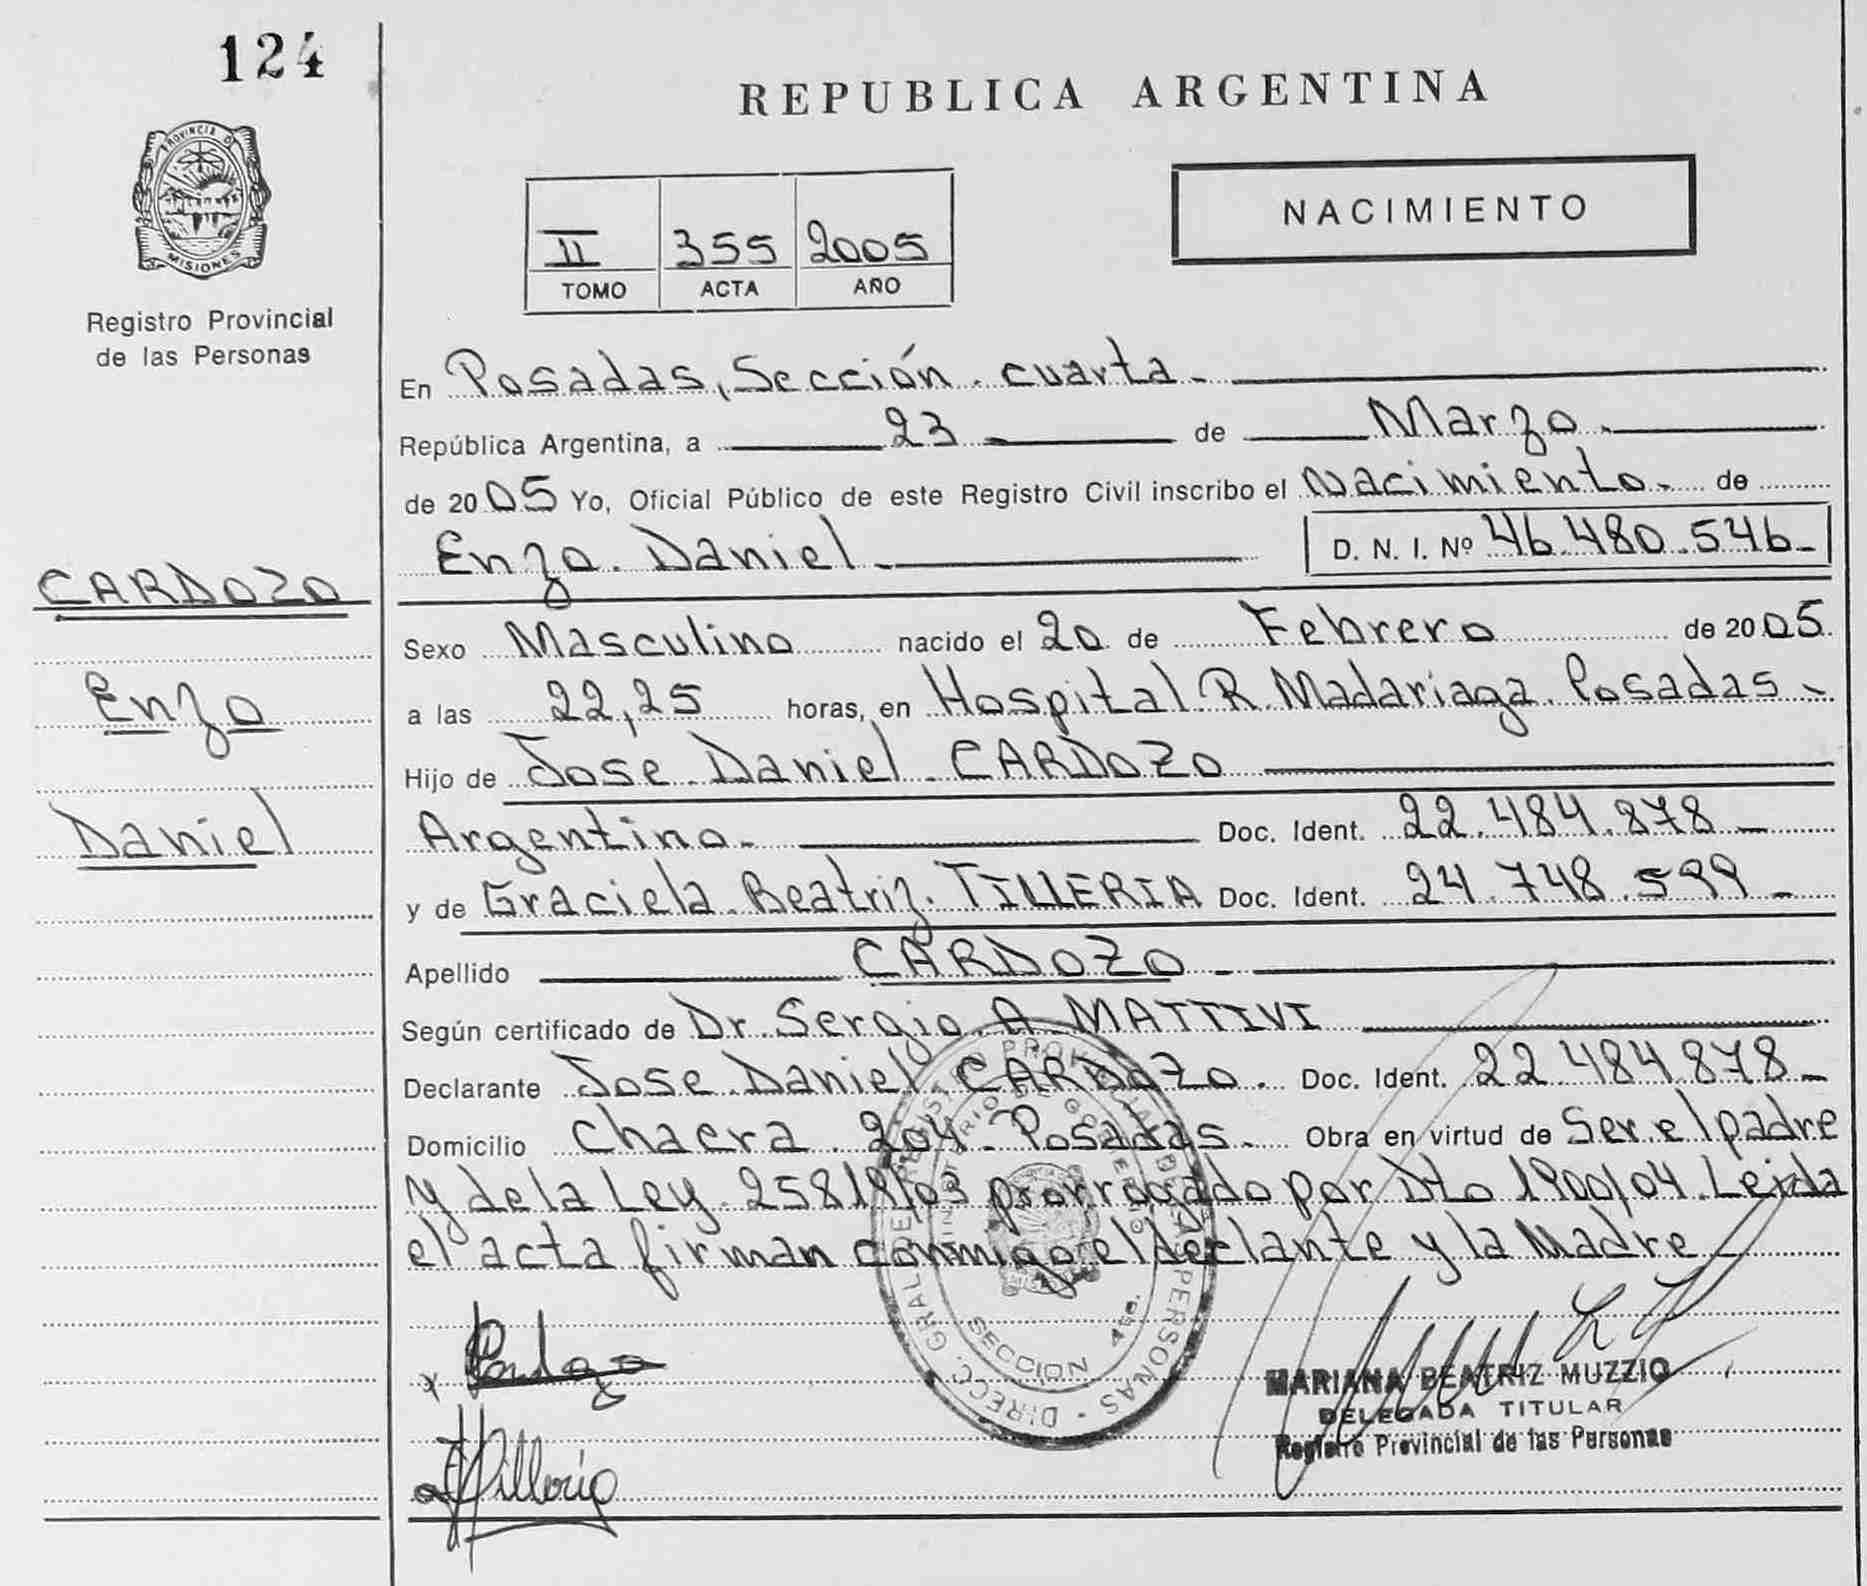 124
PROVINCIA D
MISIONES
Registro Provincial
de las Personas
CARDOZO
Enzo
Daniel
REPUBLICA ARGENTINA
II 355 2005
TOMO ACTA AÑO
NACIMIENTO
En Posadas, Sección cuarta.
República Argentina, a 23 de Marzo.
de 2005 Yo, Oficial Público de este Registro Civil inscribo el Nacimiento. de
Enzo Daniel D. N. I. Nº 46.480.546
Sexo Masculino nacido el 20 de Febrero de 2005.
a las 22,25 horas, en Hospital R. Madariaga. Posadas
Hijo de Jose Daniel CARDOZO
Argentino. Doc. Ident. 22.484.878
y de Graciela Beatriz TILLERIA Doc. Ident. 24.748.599
Apellido CARDOZO
Según certificado de Dr. Sergio A MATTIVI
Declarante Jose Daniel CARDOZO. Doc. Ident. 22.484.878
Domicilio Chacra 204. Posadas. Obra en virtud de Ser el padre
y de la Ley 25819/03 prorrogado por Dto 1900/04. Leida
el acta firman conmigo el declante y la Madre
x Cardozo
Tilleria
DIRECC. GRAL. DEL REGISTRO PROVINCIAL DE LAS PERSONAS
MINISTERIO DE GOBIERNO
SECCION 4ta.
MARIANA BEATRIZ MUZZIO
DELEGADA TITULAR
Registro Provincial de las Personas